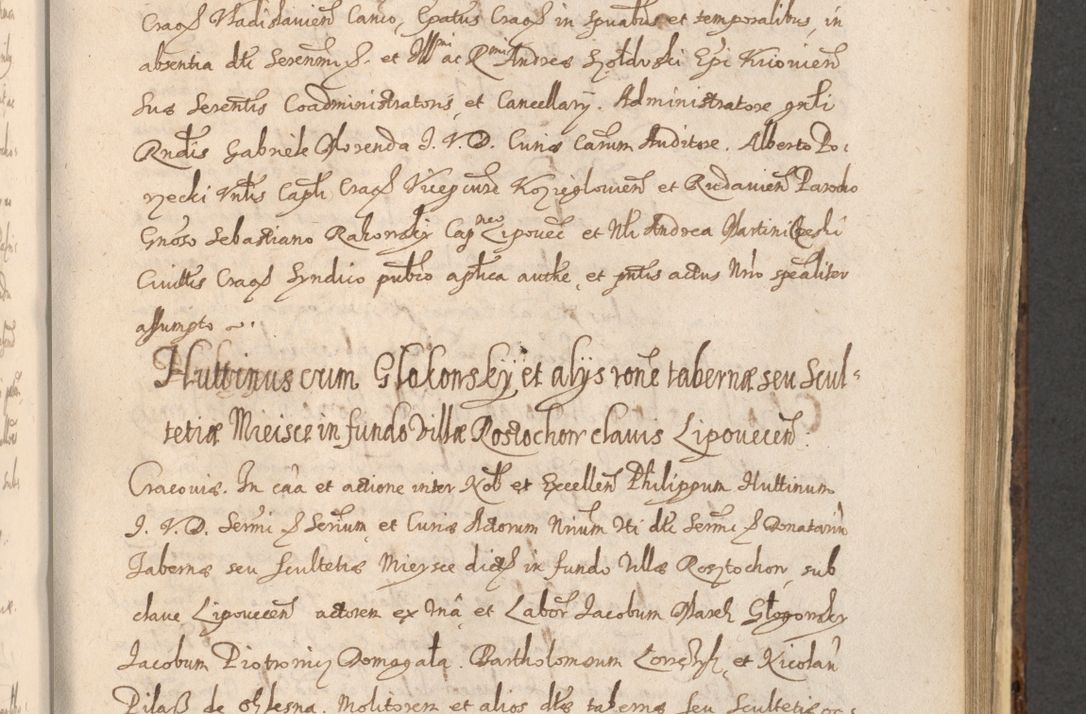 Crac Vladislavien Canco, Epatus Crac in spualibus et temporalibus, in
absentia dti Serenmi P. et Illmi ac Rmi Andreæ Szołdrski Epi Kiovien
Suæ Serentis Coadministratoris et Cancellarÿ. Administratore gnli
Rndis Gabriele Morenda J. V. D. Curiæ Causarum Auditore. Alberto Po-
Capli Crac Viceg et Rudavien Parocho
Gnoso Sebastiano Rakowsky Capneo Lipovec et Nli Andrea Martini
Civittis Crac Syndico pubco aplica authe, et pntis actus Nrio spealiter
assumpto
Huttinus cum Glokonskÿ et alÿs rone tabernæ seu Scul-
tetiæ Mieisce in fundo Villæ Rostochon clavis Lipovecen.
Cracoviæ. In caa et actione inter Nob et Excellen Philippum Huttinum
J. V. D. Sermi P Serium et Curiæ Actorum Nrium Uti dti Sermi P Donatariu
Tabernæ seu Scultetiæ Mieysce dict in fundo Villæ Rosztochon, sub
clave Lipovecen actorem ex Una et Labor Jacobum Marek Głogowsky
Jacobum Piotrowicz Domagała. Bartholomeum et Nicolau
Pilaß de Molitorem et alios dtæ tabernæ seu Scultetiæ